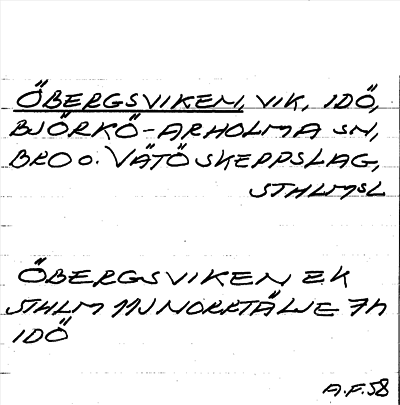 ÖBERGSVIKEN, VIK, IDÖ,
BJÖRKÖ-ARHOLMA SN,
BRO O. VÄTÖ SKEPPSLAG,
STHLMSL
ÖBERGSVIKEN EK
STHLM 11J NORRTÄLJE 7h
IDÖ
A.F. 58